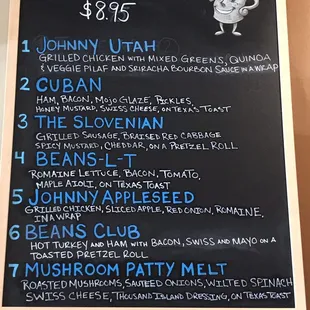 $8.95
1 JOHNNY UTAH
GRILLED CHICKEN WITH MIXED GREENS, QUINOA
& VEGGIE PILAF AND SRIRACHA BOURBON SAUCE IN A WRAP
2 CUBAN
HAM, BACON, MOJO GLAZE, PICKLES,
HONEY MUSTARD, SWISS CHEESE, ON TEXAS TOAST
3 THE SLOVENIAN
GRILLED SAUSAGE, BRAISED RED CABBAGE
SPICY MUSTARD, CHEDDAR, ON A PRETZEL ROLL
4 BEANS-L-T
ROMAINE LETTUCE, BACON, TOMATO,
MAPLE AIOLI, ON TEXAS TOAST
5 JOHNNY APPLESEED
GRILLED CHICKEN, SLICED APPLE, RED ONION, ROMAINE,
IN A WRAP
6 BEANS CLUB
HOT TURKEY AND HAM WITH BACON, SWISS AND MAYO ON A
TOASTED PRETZEL ROLL
7 MUSHROOM PATTY MELT
ROASTED MUSHROOMS, SAUTEED ONIONS, WILTED SPINACH
SWISS CHEESE, THOUSAND ISLAND DRESSING, ON TEXAS TOAST